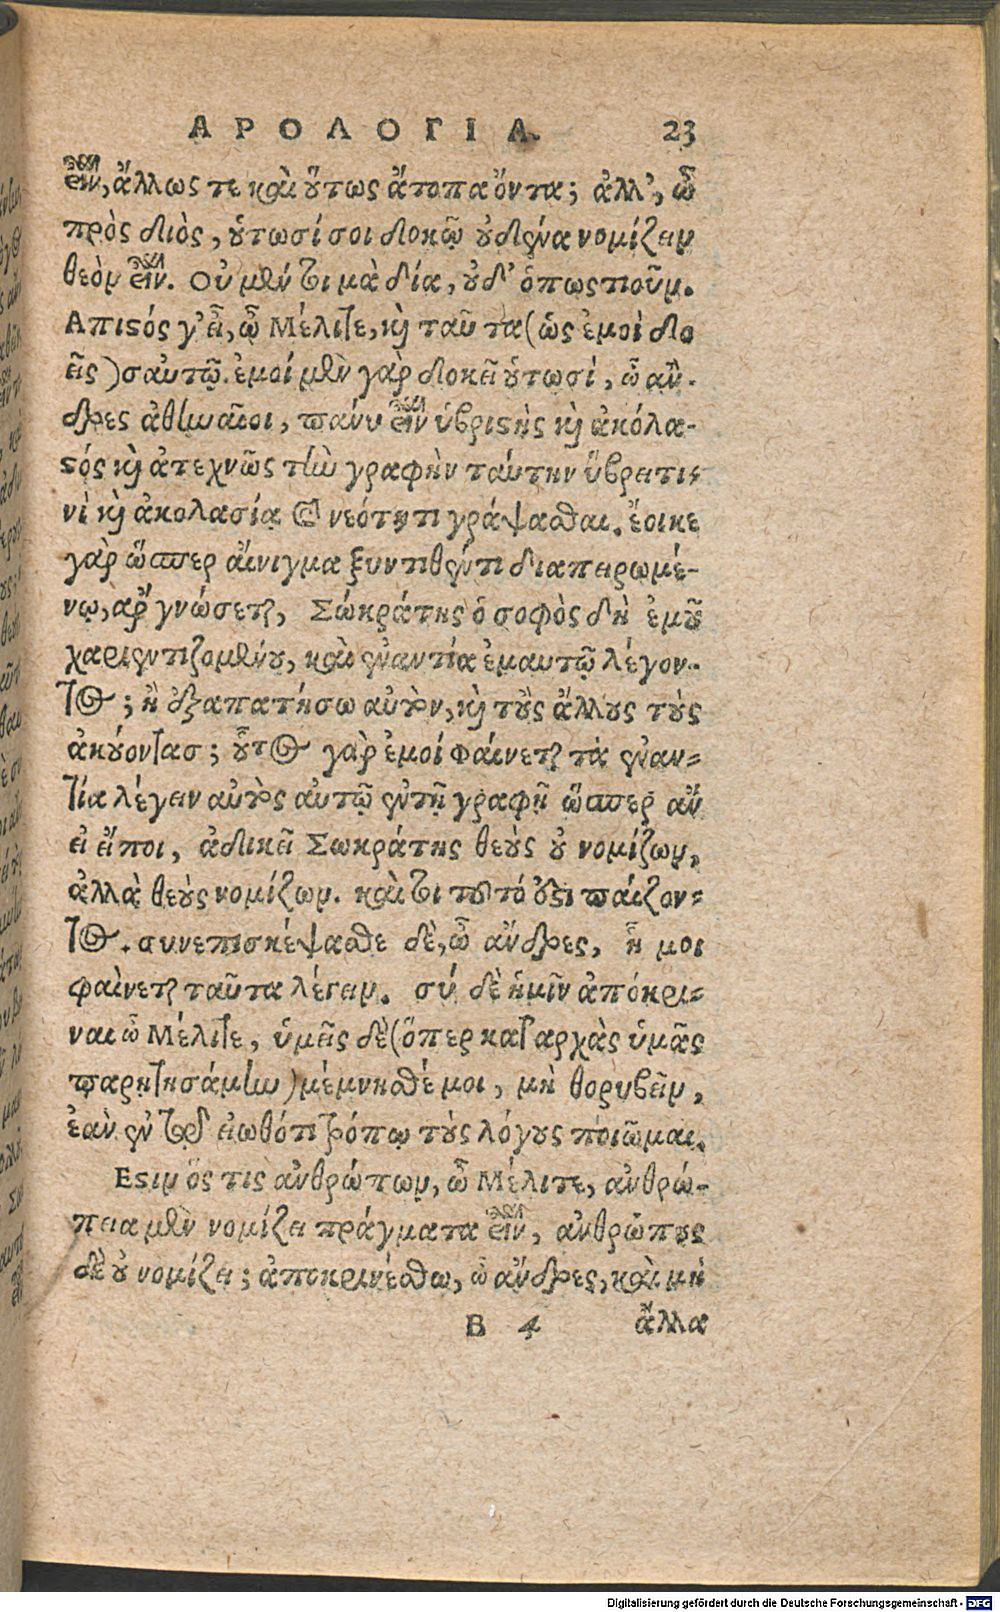 ΑΡΟΛΟΓΙΑ. 23
εἶναι, ἄλλως τε καὶ ὅτως ἄτοπα ὄντα; ἀλλ', ὦ
πρὸς διὸς, ὑτωσί σοι δοκῶ ὐδένα νομίζειν
θεὸν εἶναι. Οὐ μέντοι μὰ δία, ὐδ' ὁπωστιοῦν.
Απιστός γ' εἶ, ὦ Μέλιτε, κὶ ταῦτα (ὡς ἐμοὶ δο
εῖς) σαυτῷ. ἐμοί μὲν γὰρ δοκεῖ ὑτωσί, ὦ ἄν-
δρες ἀθηναῖοι, πάνυ εἶναι ὑβριστὴς κὶ ἀκόλα-
στός κὶ ἀτεχνῶς τὴν γραφὴν ταύτην ὕβρει τι-
νὶ κὶ ἀκολασίᾳ καὶ νεότητι γράψασθαι. ἔοικε
γὰρ ὥσπερ αἴνιγμα ξυντιθέντι διαπειρωμέ-
νῳ, ἆρ γνώσεται, Σώκράτης ὁ σοφὸς δὴ ἐμῦ
χαριεντιζομένυ, καὶ ἐναντία ἐμαυτῷ λέγον-
τος; ἢ ἐξαπατήσω αὐτὸν, κὶ τὺς ἄλλυς τὺς
ἀκύοντασ; ὗτος γὰρ ἐμοί φαίνεται τὰ ἐναν=
τία λέγειν αὐτὸς αὑτῷ ἐν τῇ γραφῇ ὥσπερ ἂν
εἰ εἴποι, ἀδικεῖ Σωκράτης θεὺς ὐ νομίζων,
ἀλλὰ θεὺς νομίζων. καὶ τοι τοῦτό ἐστι παίζον=
τος. συνεπισκέψασθε δὲ, ὦ ἄνδρες, ᾗ μοι
φαὶνεται ταῦτα λέγειν. σύ δὲ ἡμῖν ἀπόκρι=
ναι ὦ Μέλιτε, ὑμεῖς δὲ (ὅπερ κατ' αρχὰς ὑμᾶς
παρητησάμην) μέμνησθέ μοι, μὴ θορυβεῖν,
ἐὰν ἐν τῷ εἰωθότι τρόπῳ τὺς λόγυς ποιῶμαι.
Εστιν ὅς τις ἀνθρώπων, ὦ Μέλιτε, ἀνθρώ-
πεια μὲν νομίζει πράγματα εἶναι, ἀνθρώπυς
δὲ ὐ νομίζει; ἀποκρινέσθω, ὦ ἄνδρες, καὶ μὴ
B 4 ἄλλα
Digitalisierung gefördert durch die Deutsche Forschungsgemeinschaft - DFG